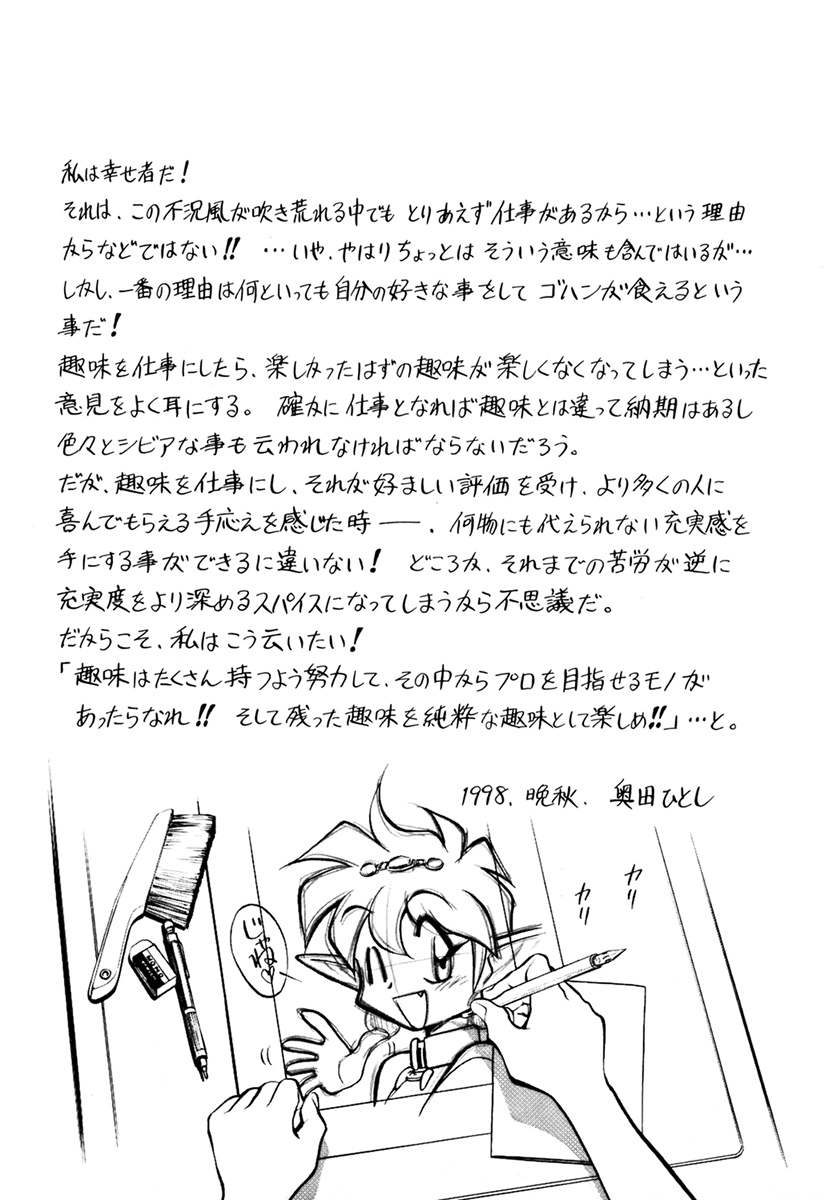 私は幸せ者だ!
それは、この不況風が吹き荒れる中でも とりあえず仕事があるから…という理由
からなどではない!! …いや、やはりちょっとは そういう意味も含んではいるが…
しかし、一番の理由は何といっても自分の好きな事をして ゴハンが食えるという
事だ!
趣味を仕事にしたら、楽しかったはずの趣味が楽しくなくなってしまう…といった
意見をよく耳にする。 確かに仕事となれば趣味とは違って納期はあるし
色々とシビアな事も云われなければならないだろう。
だが、趣味を仕事にし、それが好ましい評価を受け、より多くの人に
喜んでもらえる手応えを感じた時――、何物にも代えられない充実感を
手にする事ができるに違いない! どころか、それまでの苦労が逆に
充実度をより深めるスパイスになってしまうから不思議だ。
だからこそ、私はこう云いたい!
「趣味はたくさん持つよう努力して、その中からプロを目指せるモノが
あったらなれ!! そして残った趣味を純粋な趣味として楽しめ!!」…と。
1998. 晩秋. 奥田ひとし
カリ
カリ
じゃね♡
MONO